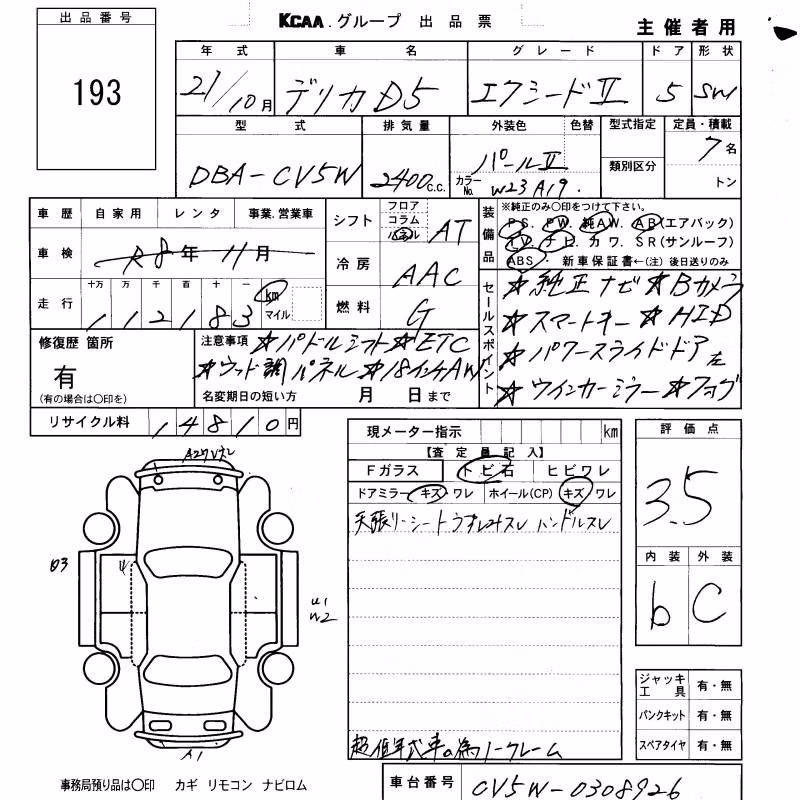 出品番号
193
KCAA.グループ 出品票
主催者用
年式 車名 グレード ドア 形状
21/10月 デリカD5 エクシードII 5 SW
型式 排気量 外装色 色替 型式指定 定員・積載
DBA-CV5W 2400c.c. パールII 7名
カラーNo. W23A19. 類別区分 トン
車歴 自家用 レンタ 事業.営業車
車検 R8年11月
走行 十万 万 千 百 十 一
112183 km マイル
シフト フロア コラム AT
冷房 AAC
燃料 G
装備品 ※純正のみ〇印をつけて下さい。
PS. PW. 純AW. AB(エアバック)
TV. ナビ. カワ. SR(サンルーフ)
ABS. 新車保証書←(注)後日送りのみ
セールスポイント
☆純正ナビ☆Bカメラ
☆スマートキー☆HID
☆パワースライドドア左
☆ウインカーミラー☆フォグ
修復歴 箇所
有
(有の場合は〇印を)
注意事項 ☆パドルシフト☆ETC
☆ウッド調パネル☆18インチAW
名変期日の短い方 月 日まで
リサイクル料 14810円
現メーター指示 km
【査定員記入】
Fガラス トビ石 ヒビワレ
ドアミラー キズ・ワレ ホイール(CP) キズ ワレ
天張リーシートうすレみスレ ハンドルスレ
超低年式車の為ノークレーム
評価点
3.5
内装 外装
b C
U3
U1
W2
A1
ジャッキ工具 有・無
パンクキット 有・無
スペアタイヤ 有・無
事務局預り品は〇印 カギ リモコン ナビロム
車台番号 CV5W-0308926